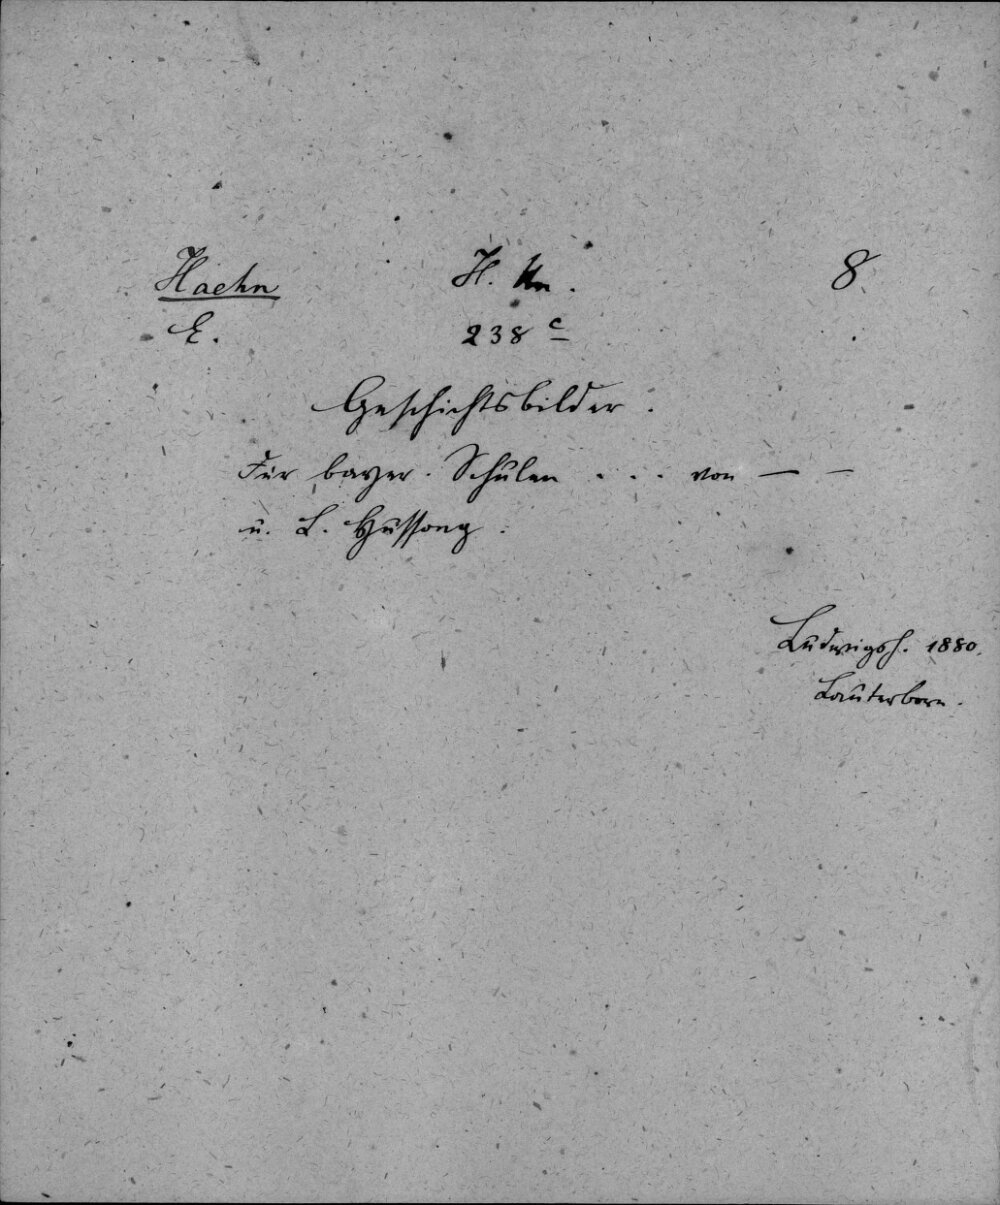 Haehn H. Un. 8
E. 238 c
Geschichtsbilder.
Für bayer. Schulen . . . von — —
u. L. Hussong.
Ludwigsh. 1880.
Lauterborn.